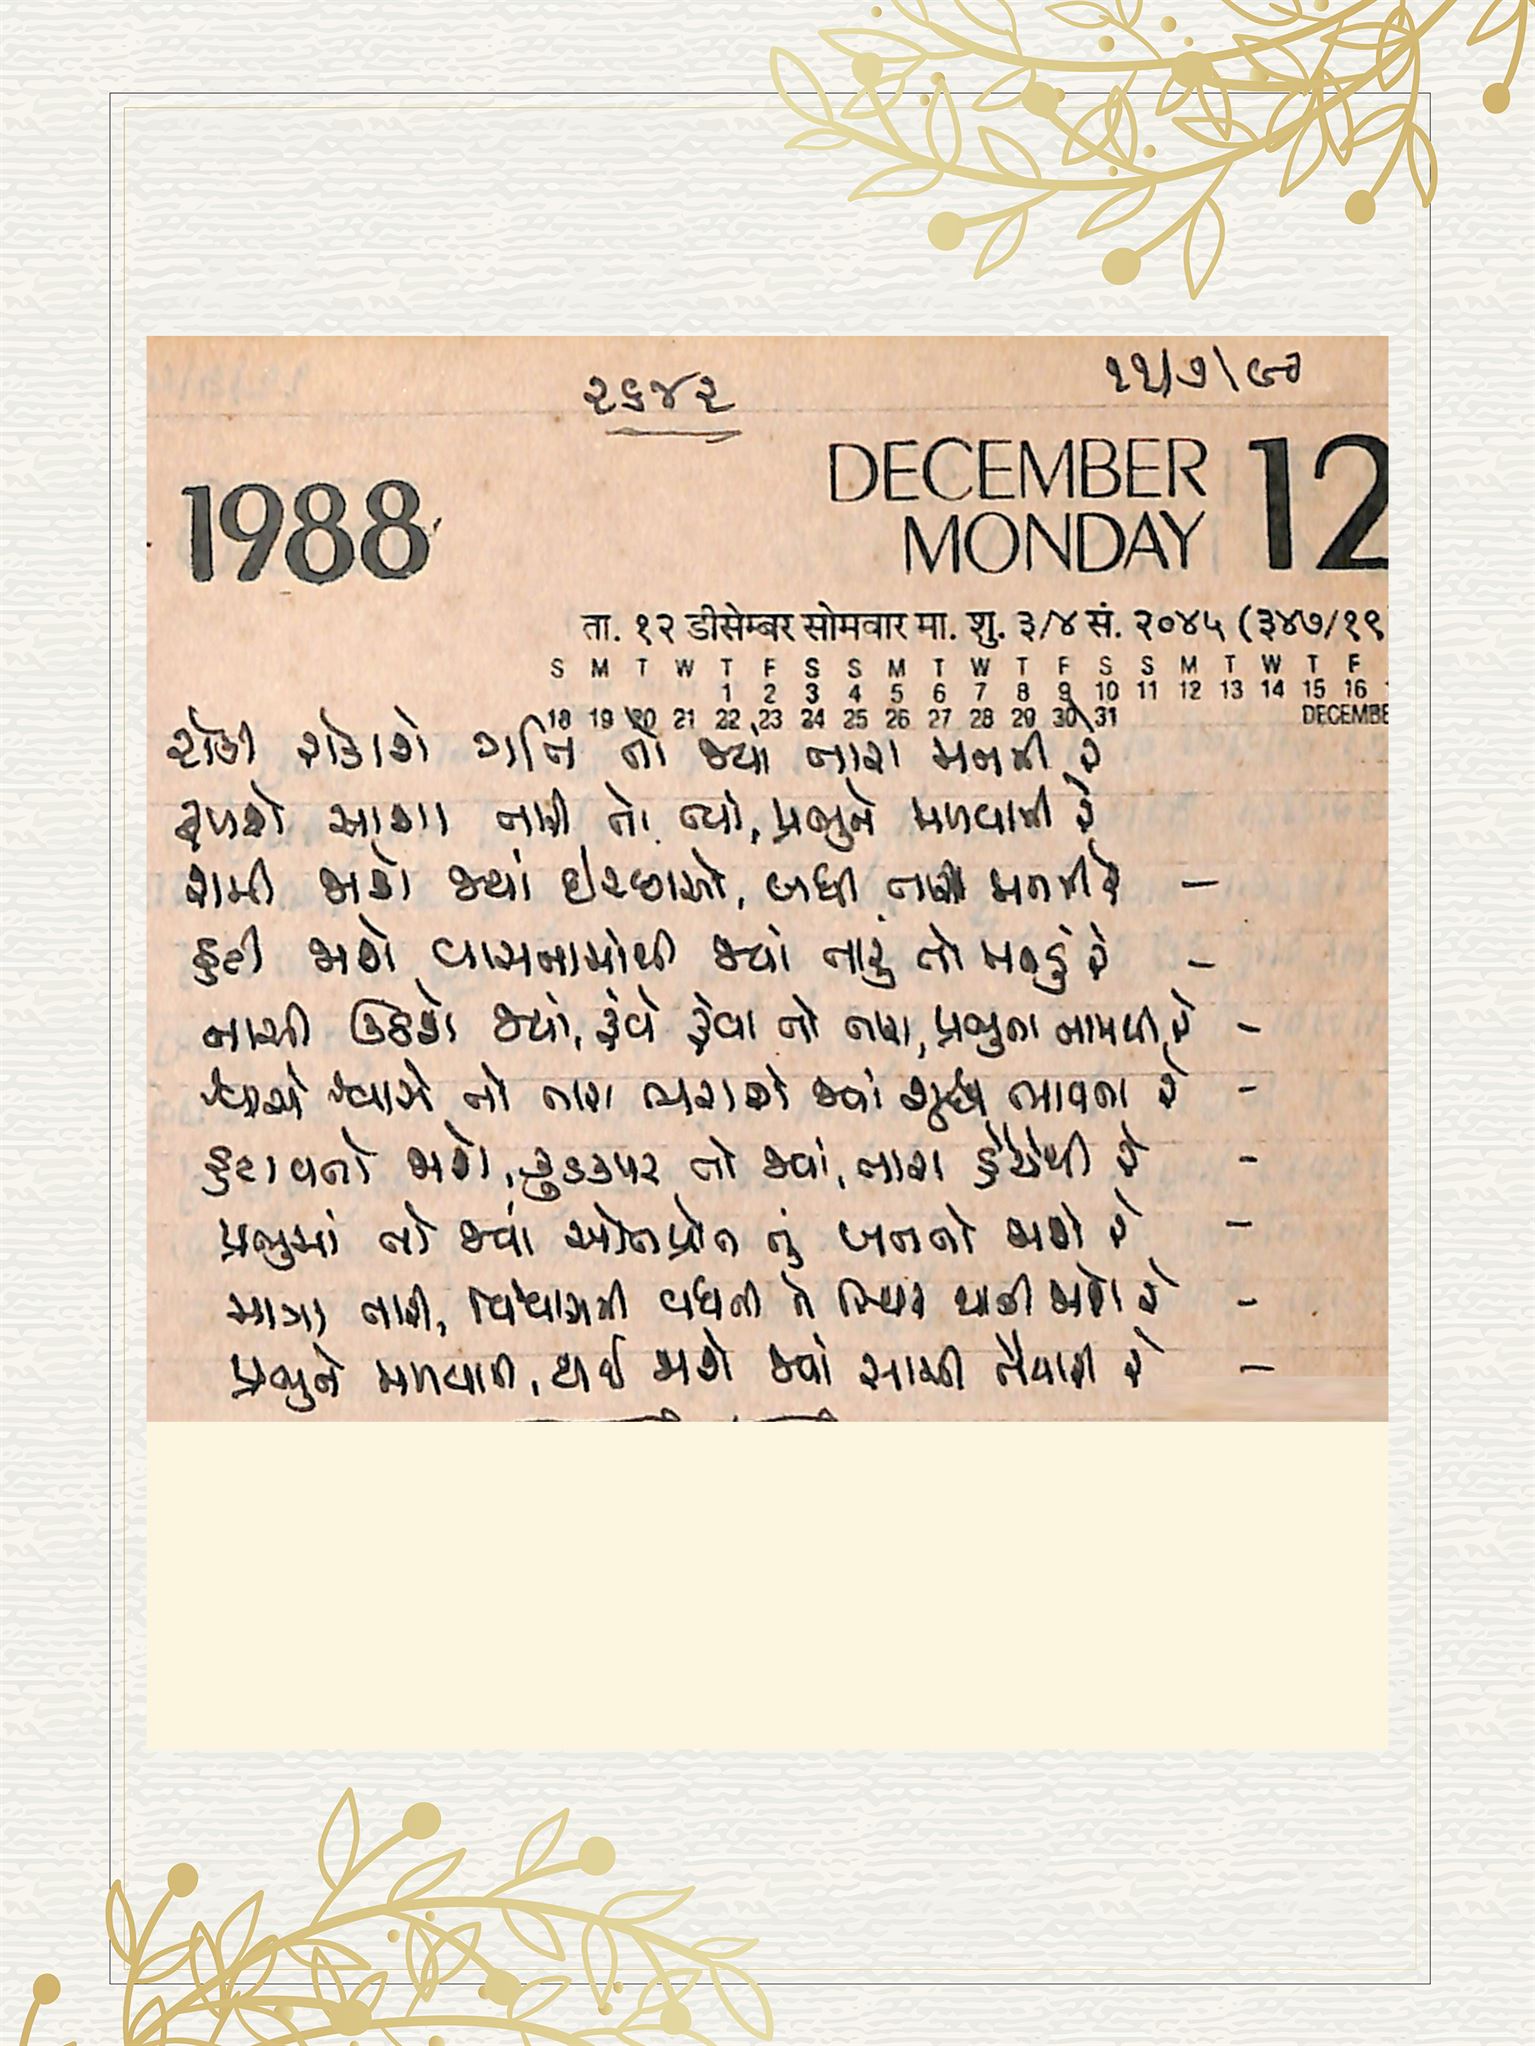 ૨૬૪૨
૧૧/૭/૯૦
1988
DECEMBER 12
MONDAY
ता. १२ डीसेम्बर सोमवार मा. शु. ३/४ सं. २०४५ (३४७/१९
S M T W T F S S M T W T F S S M T W T F
1 2 3 4 5 6 7 8 9 10 11 12 13 14 15 16
18 19 20 21 22 23 24 25 26 27 28 29 30 31 DECEMBE
રોકી શકાશે ગતિ તો જ્યાં તારા મનની રે
ફળશે આશા તારી તો ત્યાં, પ્રભુને મળવાની રે
શમી જાશે જ્યાં ઇચ્છાઓ, બધી તારા મનની રે —
છુટી જાશે વાસનામાંથી જ્યાં તારું તો મનડું રે —
નાચી ઉઠશે જ્યાં, રૂંવે રૂંવા તો તારા, પ્રભુના નામથી રે —
શ્વાસે શ્વાસે તો તારા ભરાશે જ્યાં શુદ્ધ ભાવના રે —
હટાવતો જાશે, કુડકપટ તો જ્યાં, તારા હૈયેથી રે —
પ્રભુમાં તો જ્યાં ઓતપ્રોત તું બનતો જાશે રે —
માત્રા તારી, વિશ્વાસની વધતી ને સ્થિર થાતી જાશે રે —
પ્રભુને મળવાની, થઈ જાશે જ્યાં સાચી તૈયારી રે —